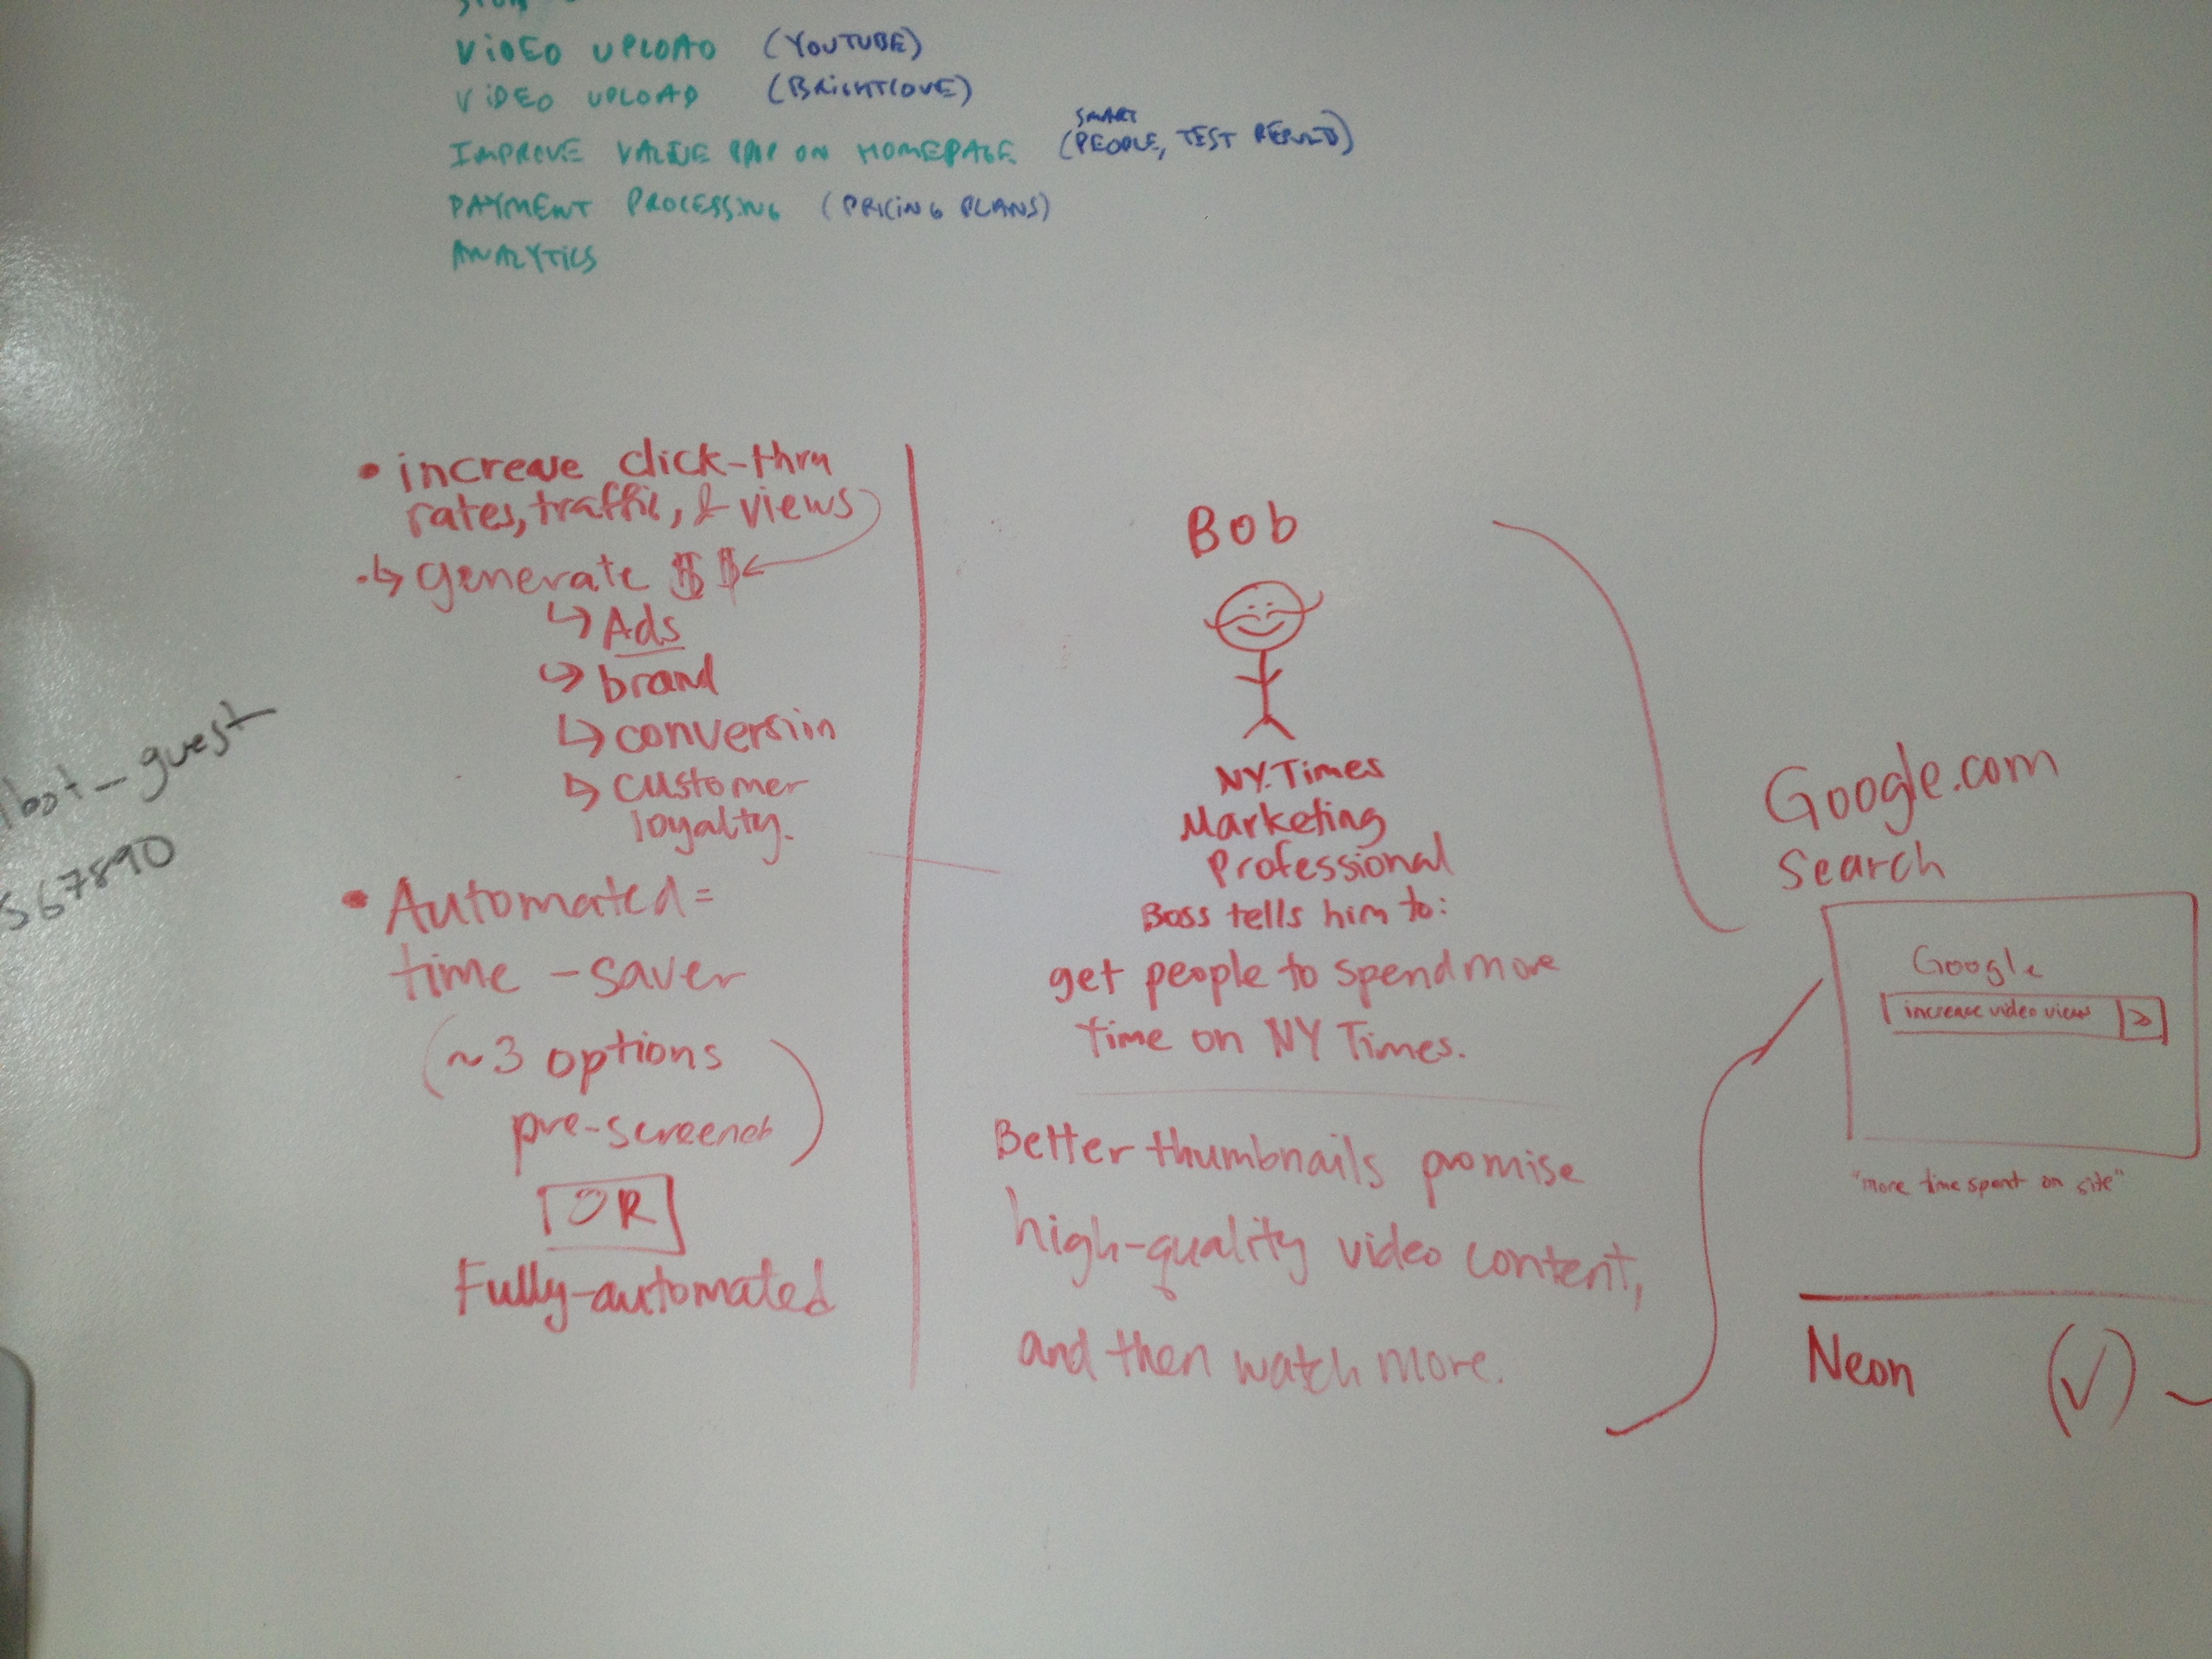 VIDEO UPLOAD (YOUTUBE)
VIDEO UPLOAD (BRIGHTCOVE)
SMART
IMPROVE VALUE PROP ON HOMEPAGE (PEOPLE, TEST RESULTS)
PAYMENT PROCESSING (PRICING PLANS)
ANALYTICS
• increase click-thru
rates, traffic, & views
• ↳ generate $$
↳ Ads
↳ brand
↳ conversion
↳ customer
loyalty.
• Automated =
time-saver
(~3 options
pre-screened)
OR
Fully-automated
bot_guest
567890
Bob
NY.Times
Marketing
Professional
Boss tells him to:
get people to spend more
time on NY Times.
Better thumbnails promise
high-quality video content,
and then watch more.
Google.com
Search
Google
increase video views >
"more time spent on site"
Neon (✓)